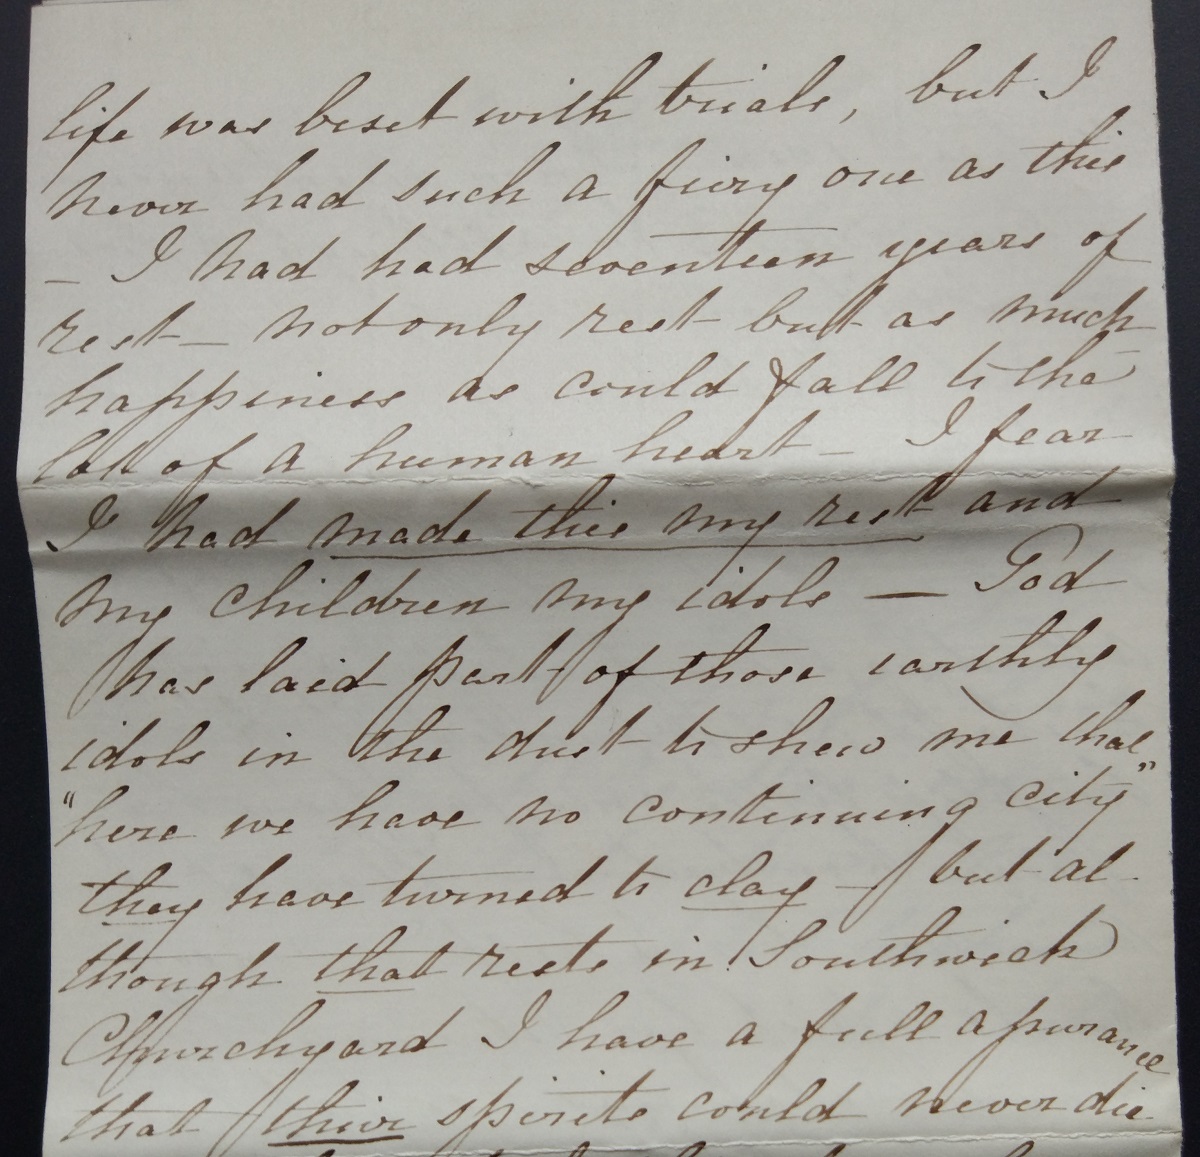 life was beset with trials, but I
never had such a fiery one as this
— I had had seventeen years of
rest — not only rest but as much
happiness as could fall to the
lot of a human heart — I fear
I had made this my rest and
my children my idols — God
has laid part of those earthly
idols in the dust to shew me that
"here we have no continuing city"
they have turned to clay — but al-
though that rests in Southwick
Churchyard I have a full assurance
that their spirits could never die